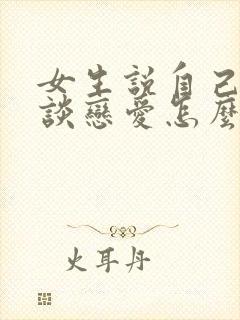 女生説自己
談戀愛怎麼
火耳丹